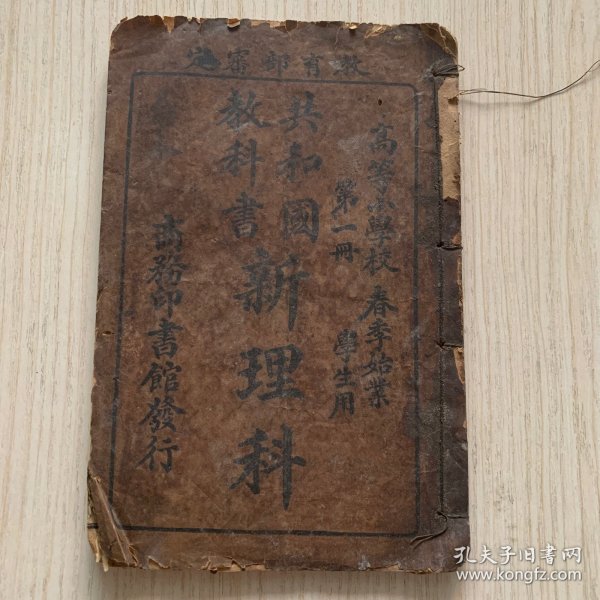 教育部審定
高等小學校 春季始業
第一冊 學生用
共和國
教科書
新理科
商務印書館發行
孔夫子旧书网
www.kongfz.com